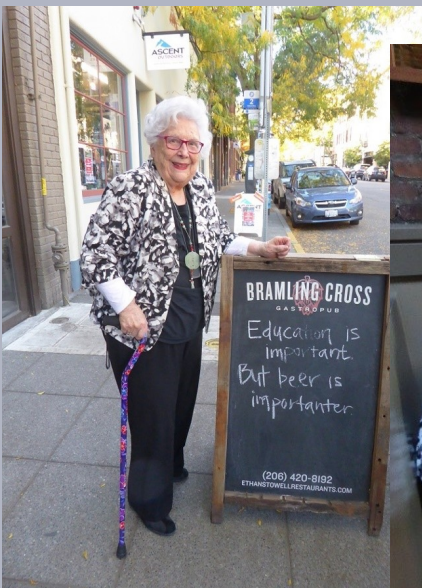 ASCENT
OUTDOORS
ASCENT
BRAMLING CROSS
GASTROPUB
Education is
important.
But beer is
importanter.
(206) 420-8192
ETHANSTOWELLRESTAURANTS.COM